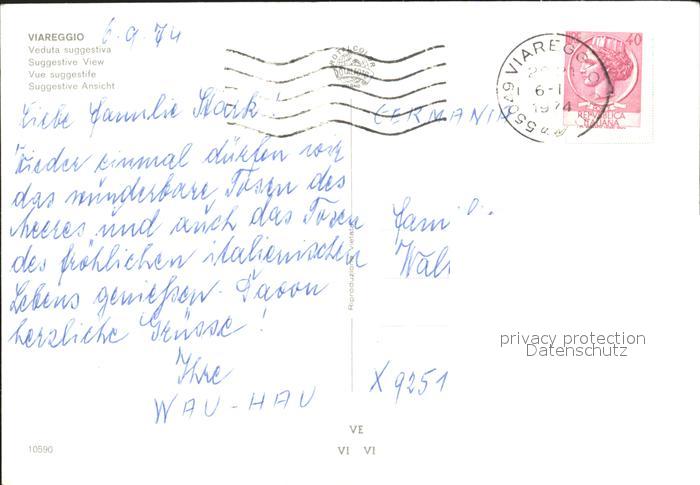 VIAREGGIO
Veduta suggestiva
Suggestive View
Vue suggestife
Suggestive Ansicht
6.9.74
ROTALCOLOR
55049 VIAREGGIO
6-1
1974
40
REPUBBLICA
ITALIANA
Liebe Familie Stark!
GERMANIA
Wieder einmal dürfen wir
das wunderbare Tosen des
Meeres und auch das Tosen
des fröhlichen italienischen
Lebens genießen. Davon
herzliche Grüsse!
Ihre
WAU-HAU
Fam
Wal
X 9251
Riproduzione Vietata
privacy protection
Datenschutz
10590
VE
VI VI